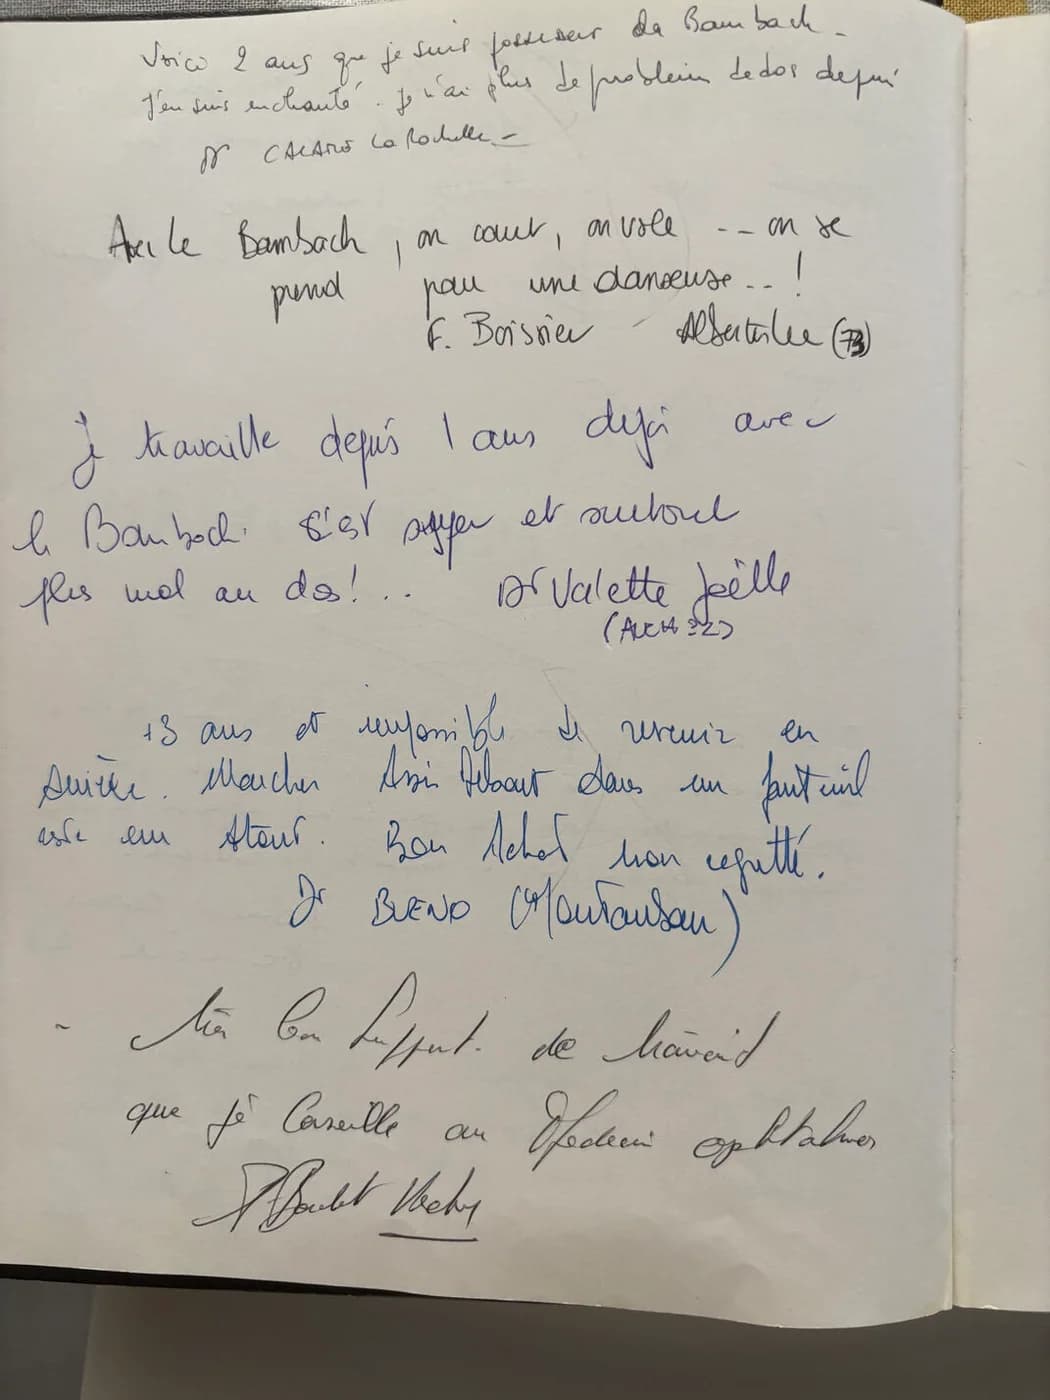 Voici 2 ans que je suis possesseur da Bambach -
J'en suis enchanté. je n'ai plus de problem de dos depui
Dr CALANO La Rochelle -
Avec le Bambach, on court, on vole -- on se
prend pour une danseuse.. !
F. Boissier - Albertville (73)
Je travaille depuis 1 ans deja avec
le Bambach. C'est super et surtout
plus mal au dos! .. Dr Valette Joëlle
(AUCH 32)
+3 ans et impossible de revenir en
arrière. Marcher Assis Debout dans un fauteuil
est un atout. Bon Achat non regretté.
Dr BUENO (Montauban)
- très bon support. de travail
que je conseille au Medecin ophtalmo
Boulet Vichy